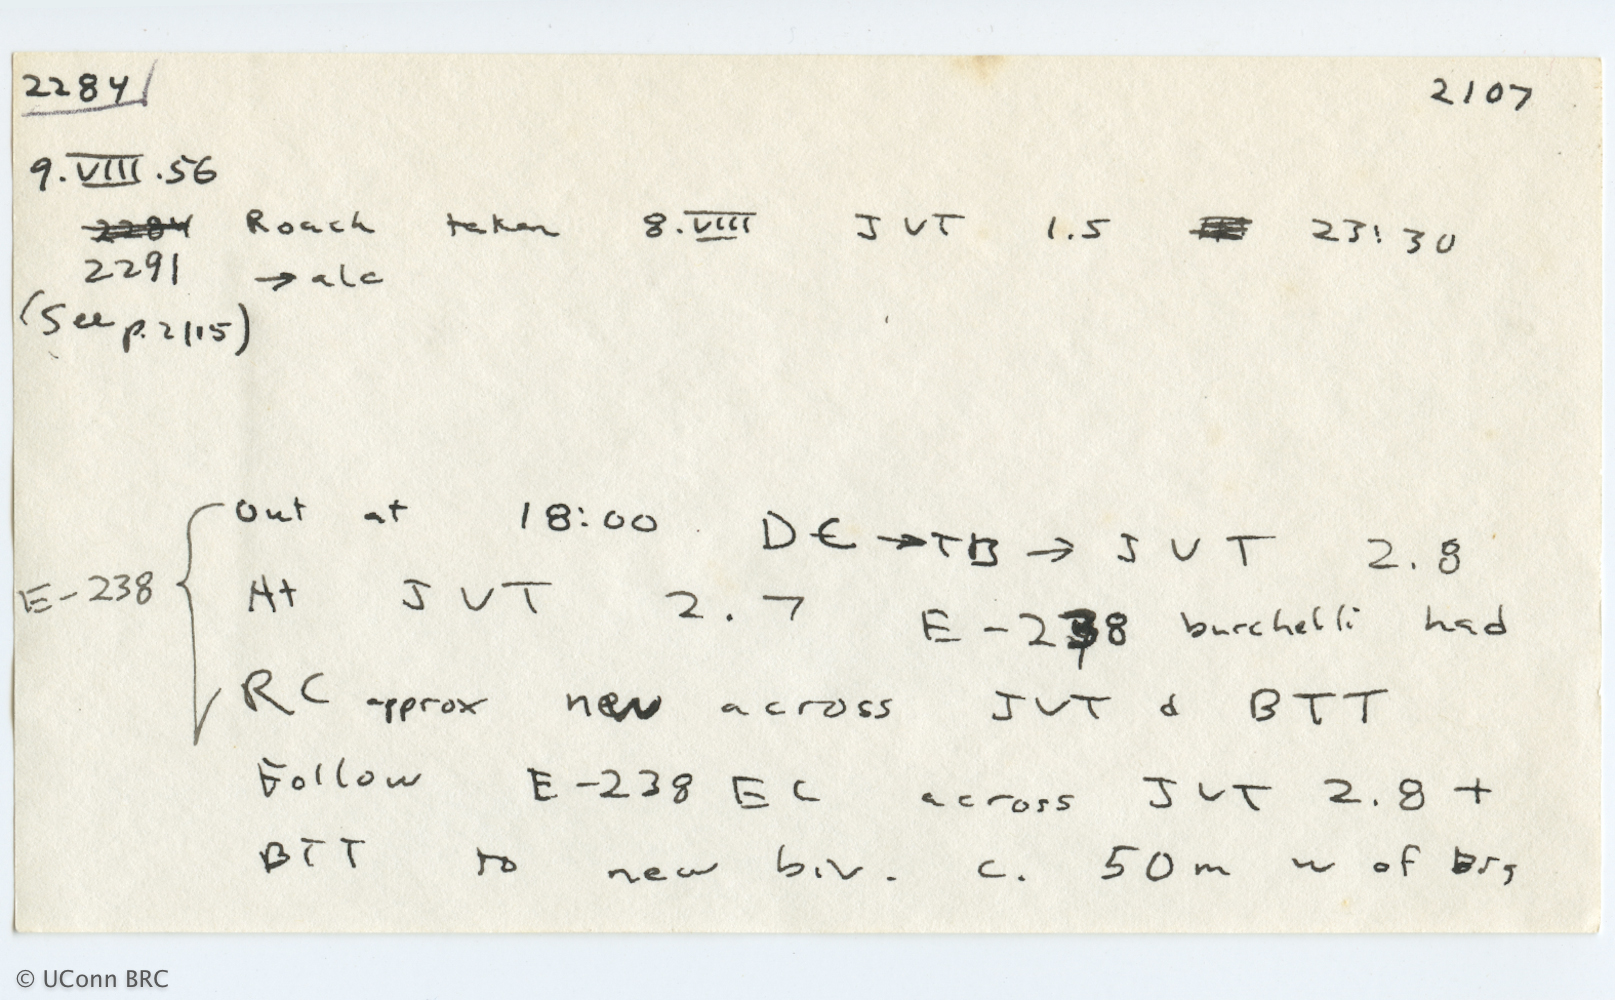 2284 2107
9.VIII.56
2284 Roach taken 8.VIII JVT 1.5 23:30
2291 → alc
(See p. 2115)
Out at 18:00 DE → TB → JVT 2.8
E-238 At JVT 2.7 E-238 burchelli had
RC approx new across JVT & BTT
Follow E-238 EC across JVT 2.8 +
BTT to new biv. c. 50m w of
© UConn BRC